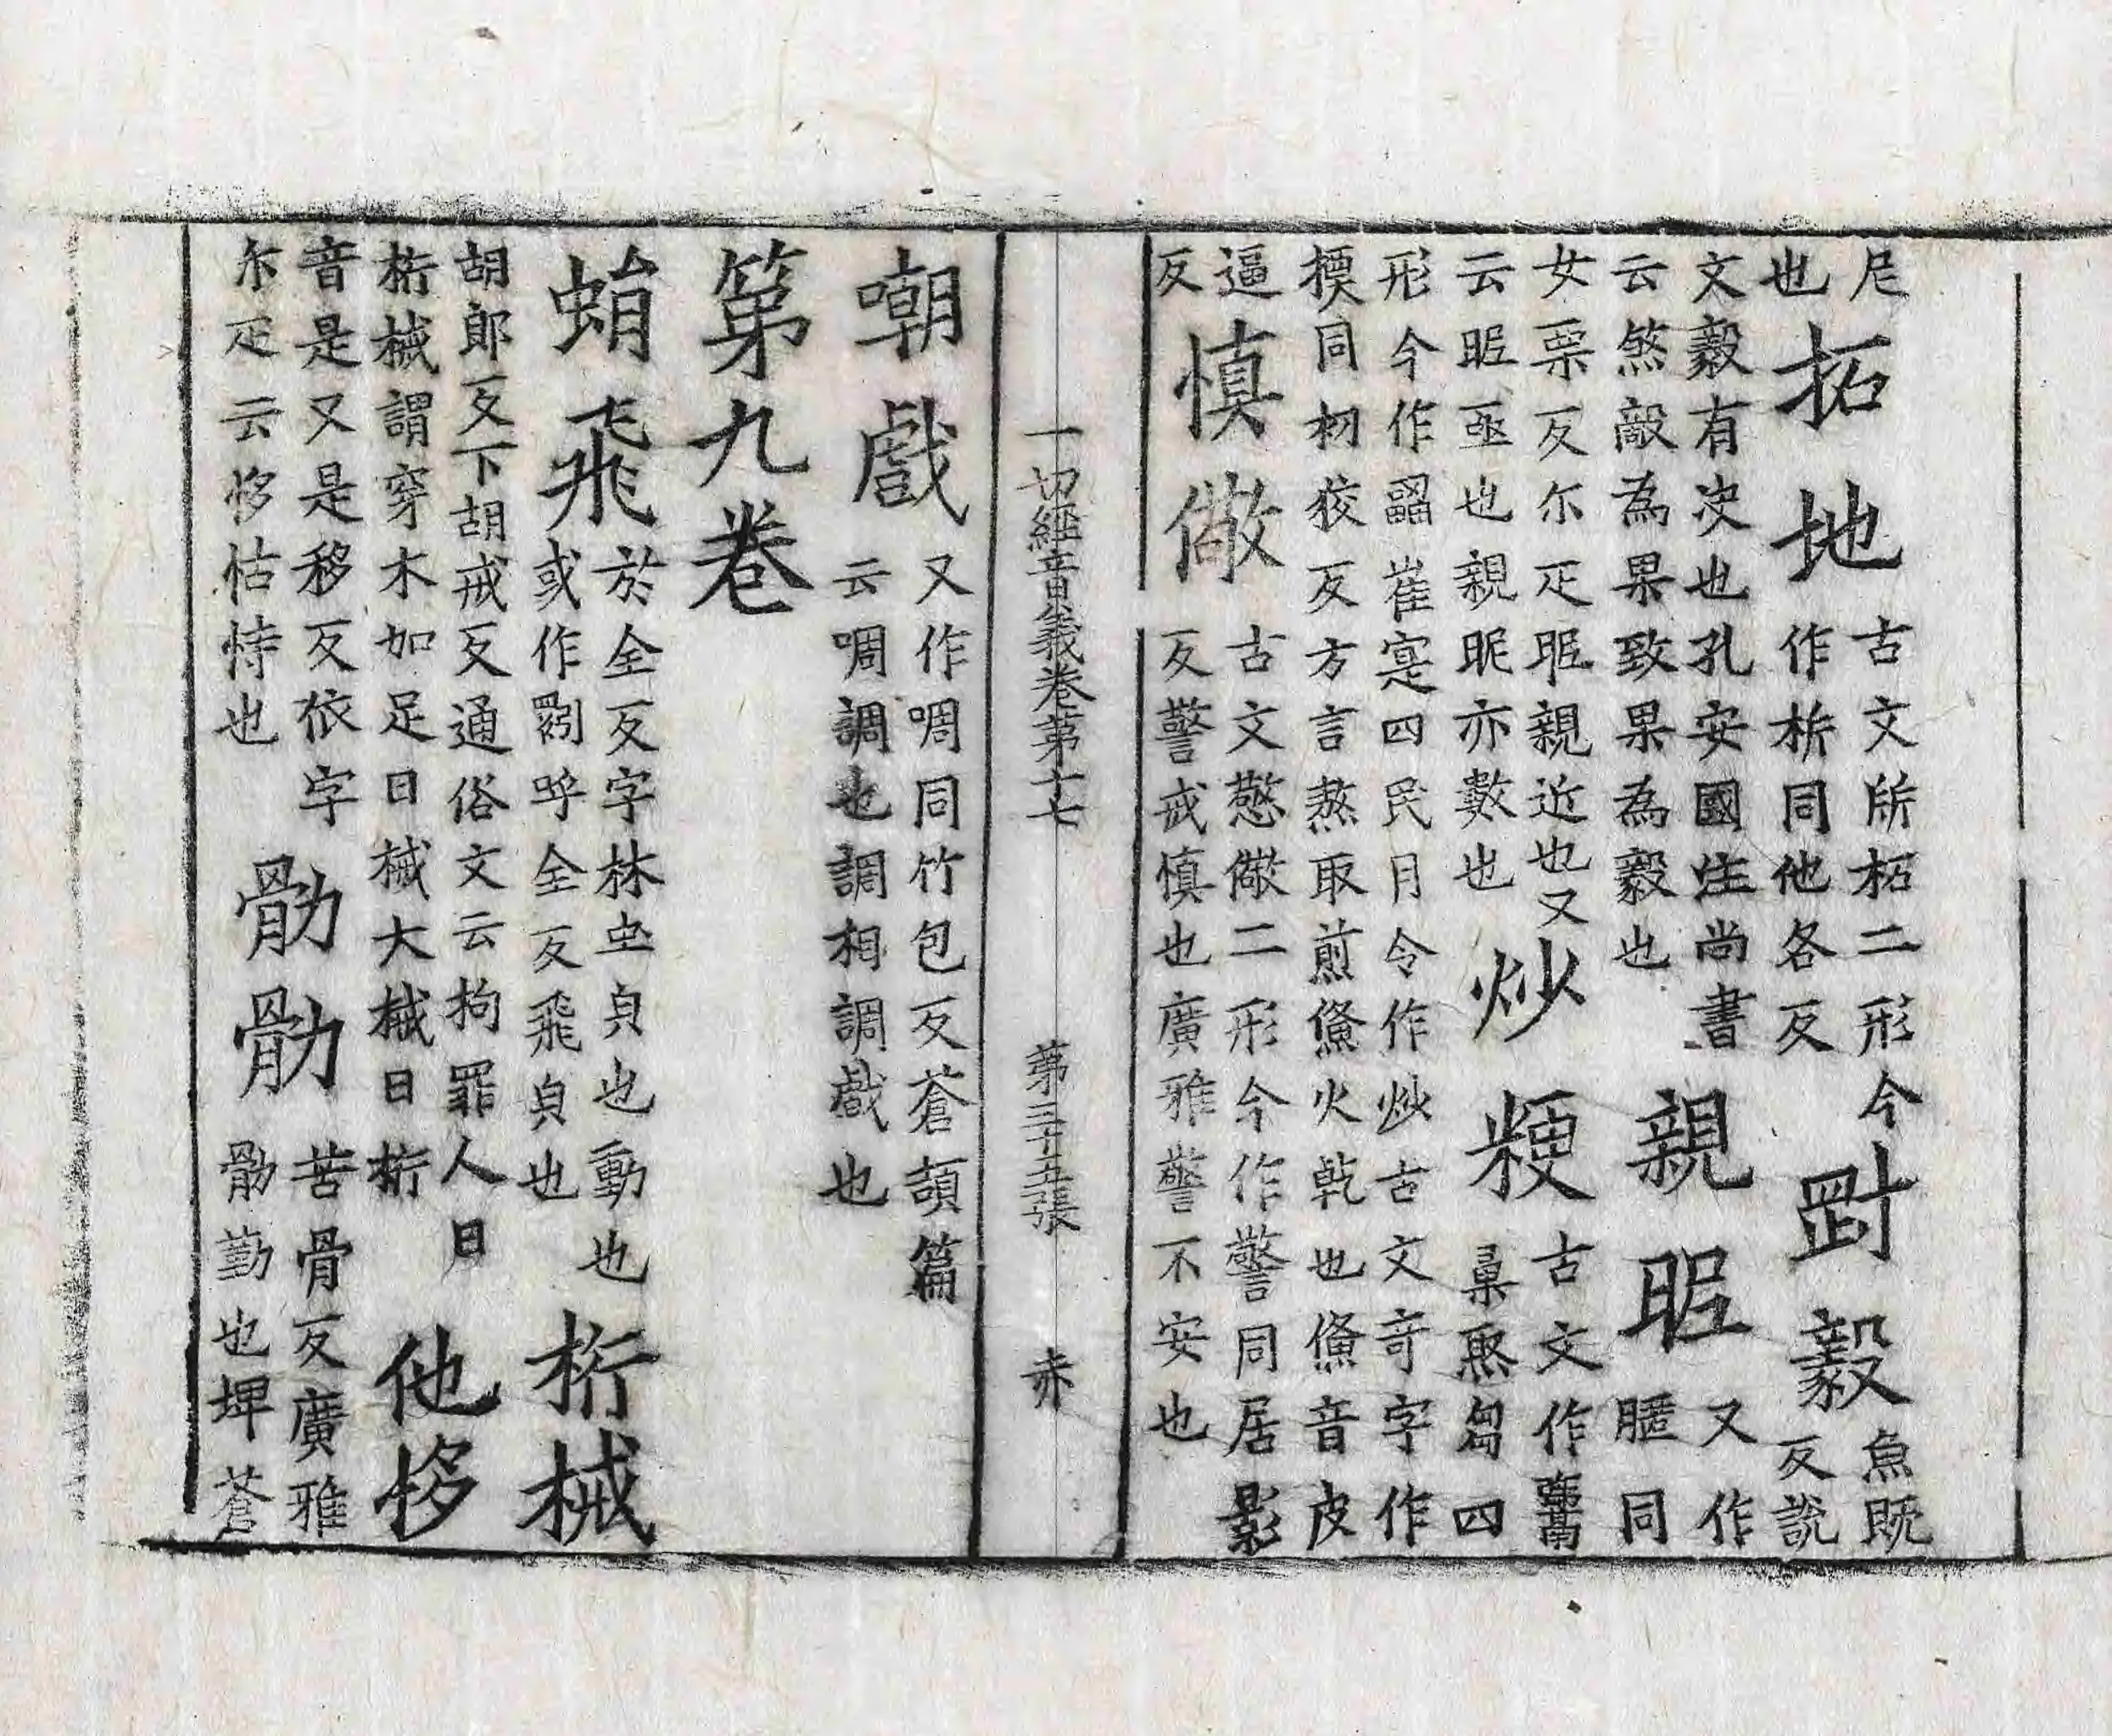 尼
也
拓地
古文𢩬拓二形今
作㭊同他各反
剛毅
魚既
反說
文毅有决也孔安國注尚書
云煞敵為果致果為毅也
親昵
又作
䁥同
女栗反尒疋昵親近也又
云昵亟也親昵亦數也
炒粳
古文作
四
形今作崔寔四民月令作炒古文奇字作
同初狡反方言熬取煎㷶火乾也㷶音皮
逼
反
慎儆
古文憼儆二形今作警同居影
反警戒慎也廣雅警不安也
一切經音義卷第十七 第三十五張 赤
嘲戲
又作啁同竹包反蒼頡篇
云啁調也調相調戲也
第九卷
蜎飛
於全反字林虫皃也動也
或作𧕎呼全反飛皃也
桁械
胡郎反下胡戒反通俗文云拘罪人曰
桁械謂穿木加足曰械大械曰桁
他恀
音是又是移反依字
尒疋云恀怙恃也
劀劀
苦骨反廣雅
勤也埤蒼